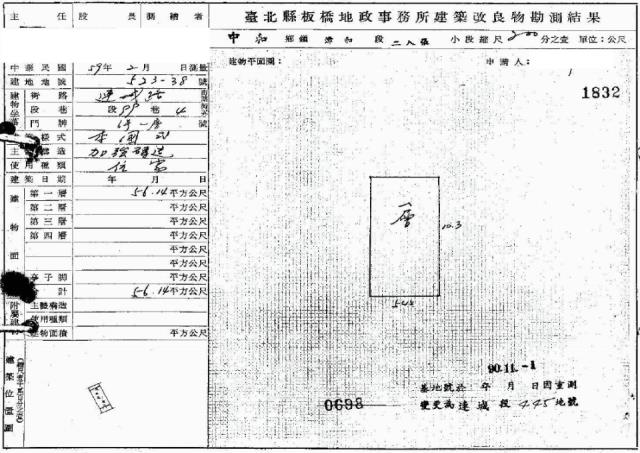 主任 股長 測繪者
臺北縣板橋地政事務所建築改良物勘測結果
中和 鄉鎮 漳和 段 二八張 小段縮尺 1/200 分之壹 單位:公尺
中華民國 59年 2月 日測量
建物平面圖: 申請人:
建地地號 523-38號
1832
建物坐落 街路 連城路
段巷 段 89 巷 4
門牌 號
樣式 本國式
主 構造 加強磚造
使用種類 住家
建築日期 年 月 日
建物面 第一層 56.14平方公尺
第二層 平方公尺
第三層 平方公尺
第四層 平方公尺
平方公尺
平方公尺
亭子腳 平方公尺
計 56.14平方公尺
附屬建 主體構造
使用種類
建物面積 平方公尺
一層
10.3
5.45
建築位置圖
90.11.-1
基地號於 年 月 日因重測
變更為 連城 段 445 地號
0698